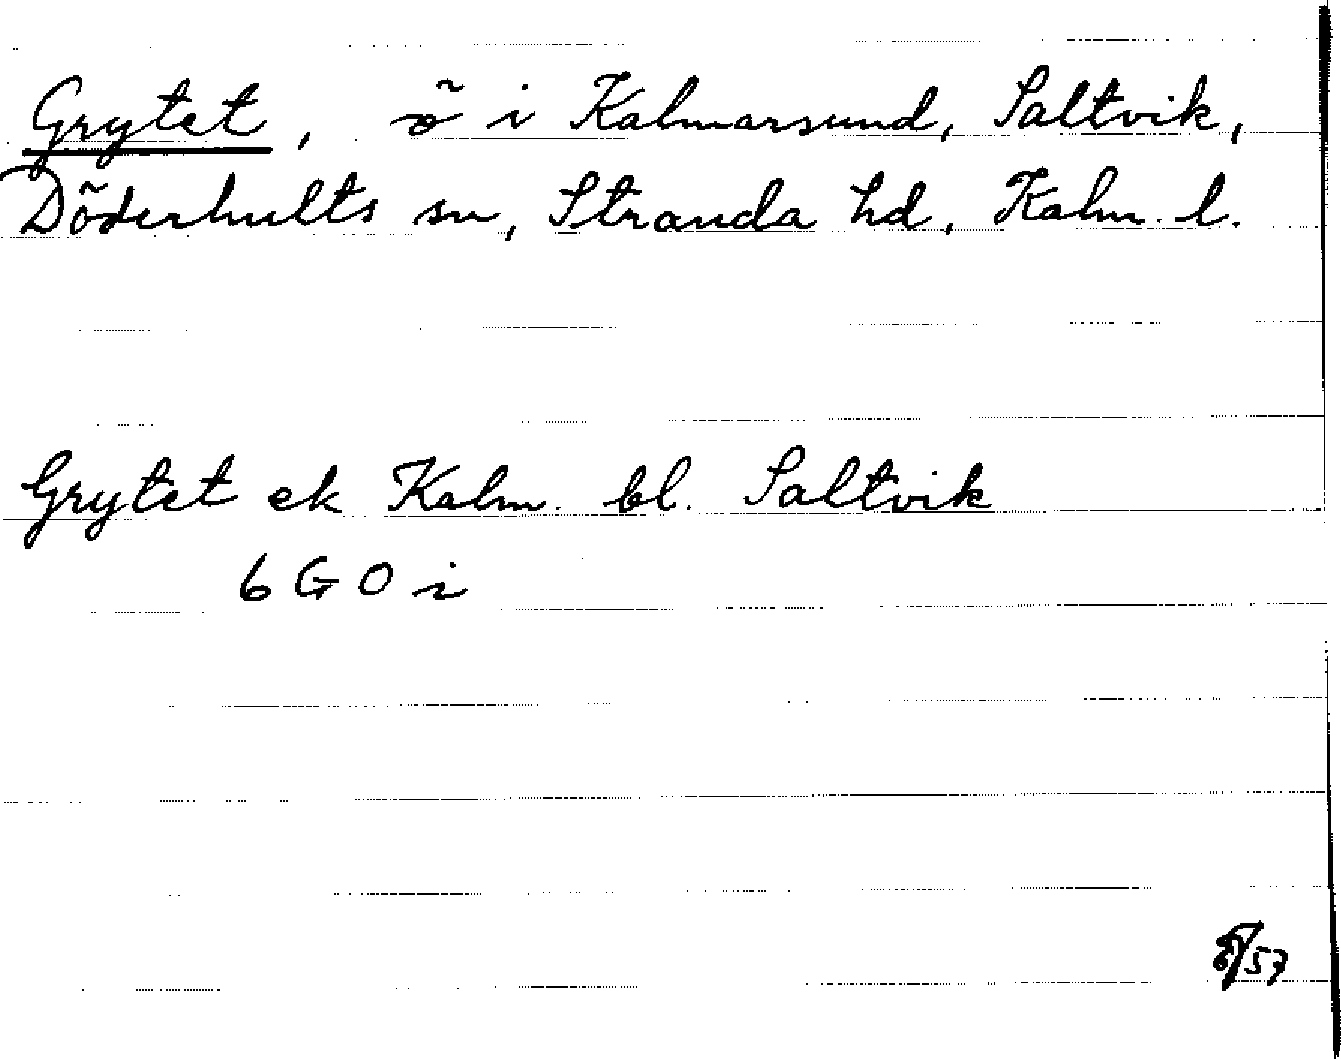 Grytet, ö i Kalmarsund, Saltvik,
Döderhults sn, Stranda hd, Kalm. l.
Grytet ek Kalm. bl. Saltvik
6 G O i